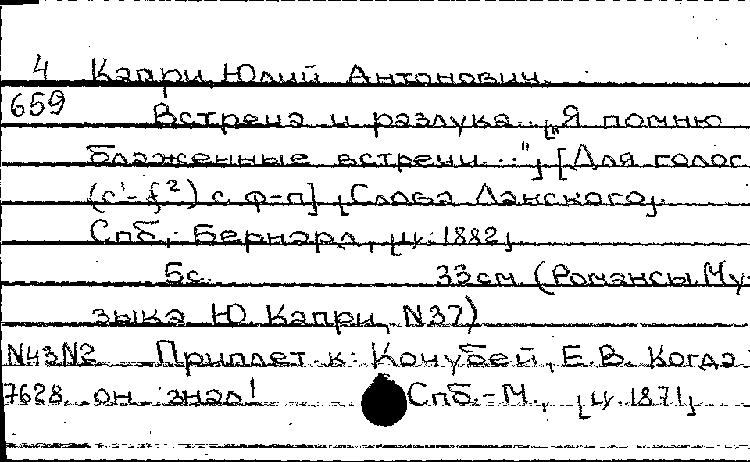 4 Капри, Юлий Антонович.
659 Встреча и разлука. [„Я помню
блаженные встречи..."] [Для голос
(c¹-f²) с ф-п] [Слова Ланского].
Спб., Бернард, [ц. 1882]
5с. 33см (Романсы. Му-
зыка Ю. Капри, N37)
N43N2 Приплет. к: Кочубей, Е.В. Когда б
7628. он знал! Спб.-М., [ц. 1871]